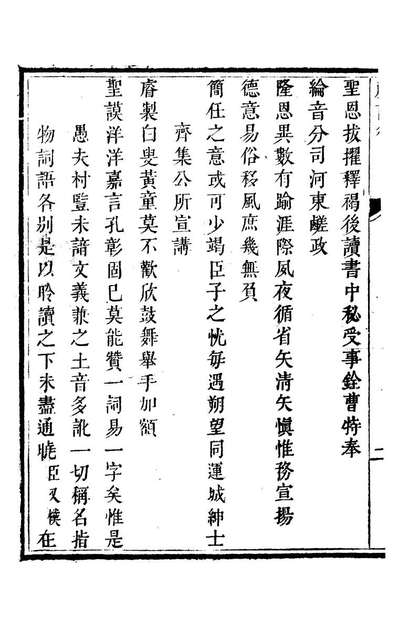 聖恩拔擢釋褐後讀書中秘受事銓曹特奉
綸音分司河東鹺政
隆恩異數有踰涯際夙夜循省矢清矢慎惟務宣揚
德意易俗移風庶幾無負
簡任之意或可少竭臣子之忱每遇朔望同運城紳士
齊集公所宣講
睿製白叟黃童莫不歡欣鼓舞舉手加額
聖謨洋洋嘉言孔彰固已莫能贊一詞易一字矣惟是
愚夫村豎未諳文義兼之土音多訛一切稱名指
物詞語各別是以聆讀之下未盡通曉臣又樸在
二